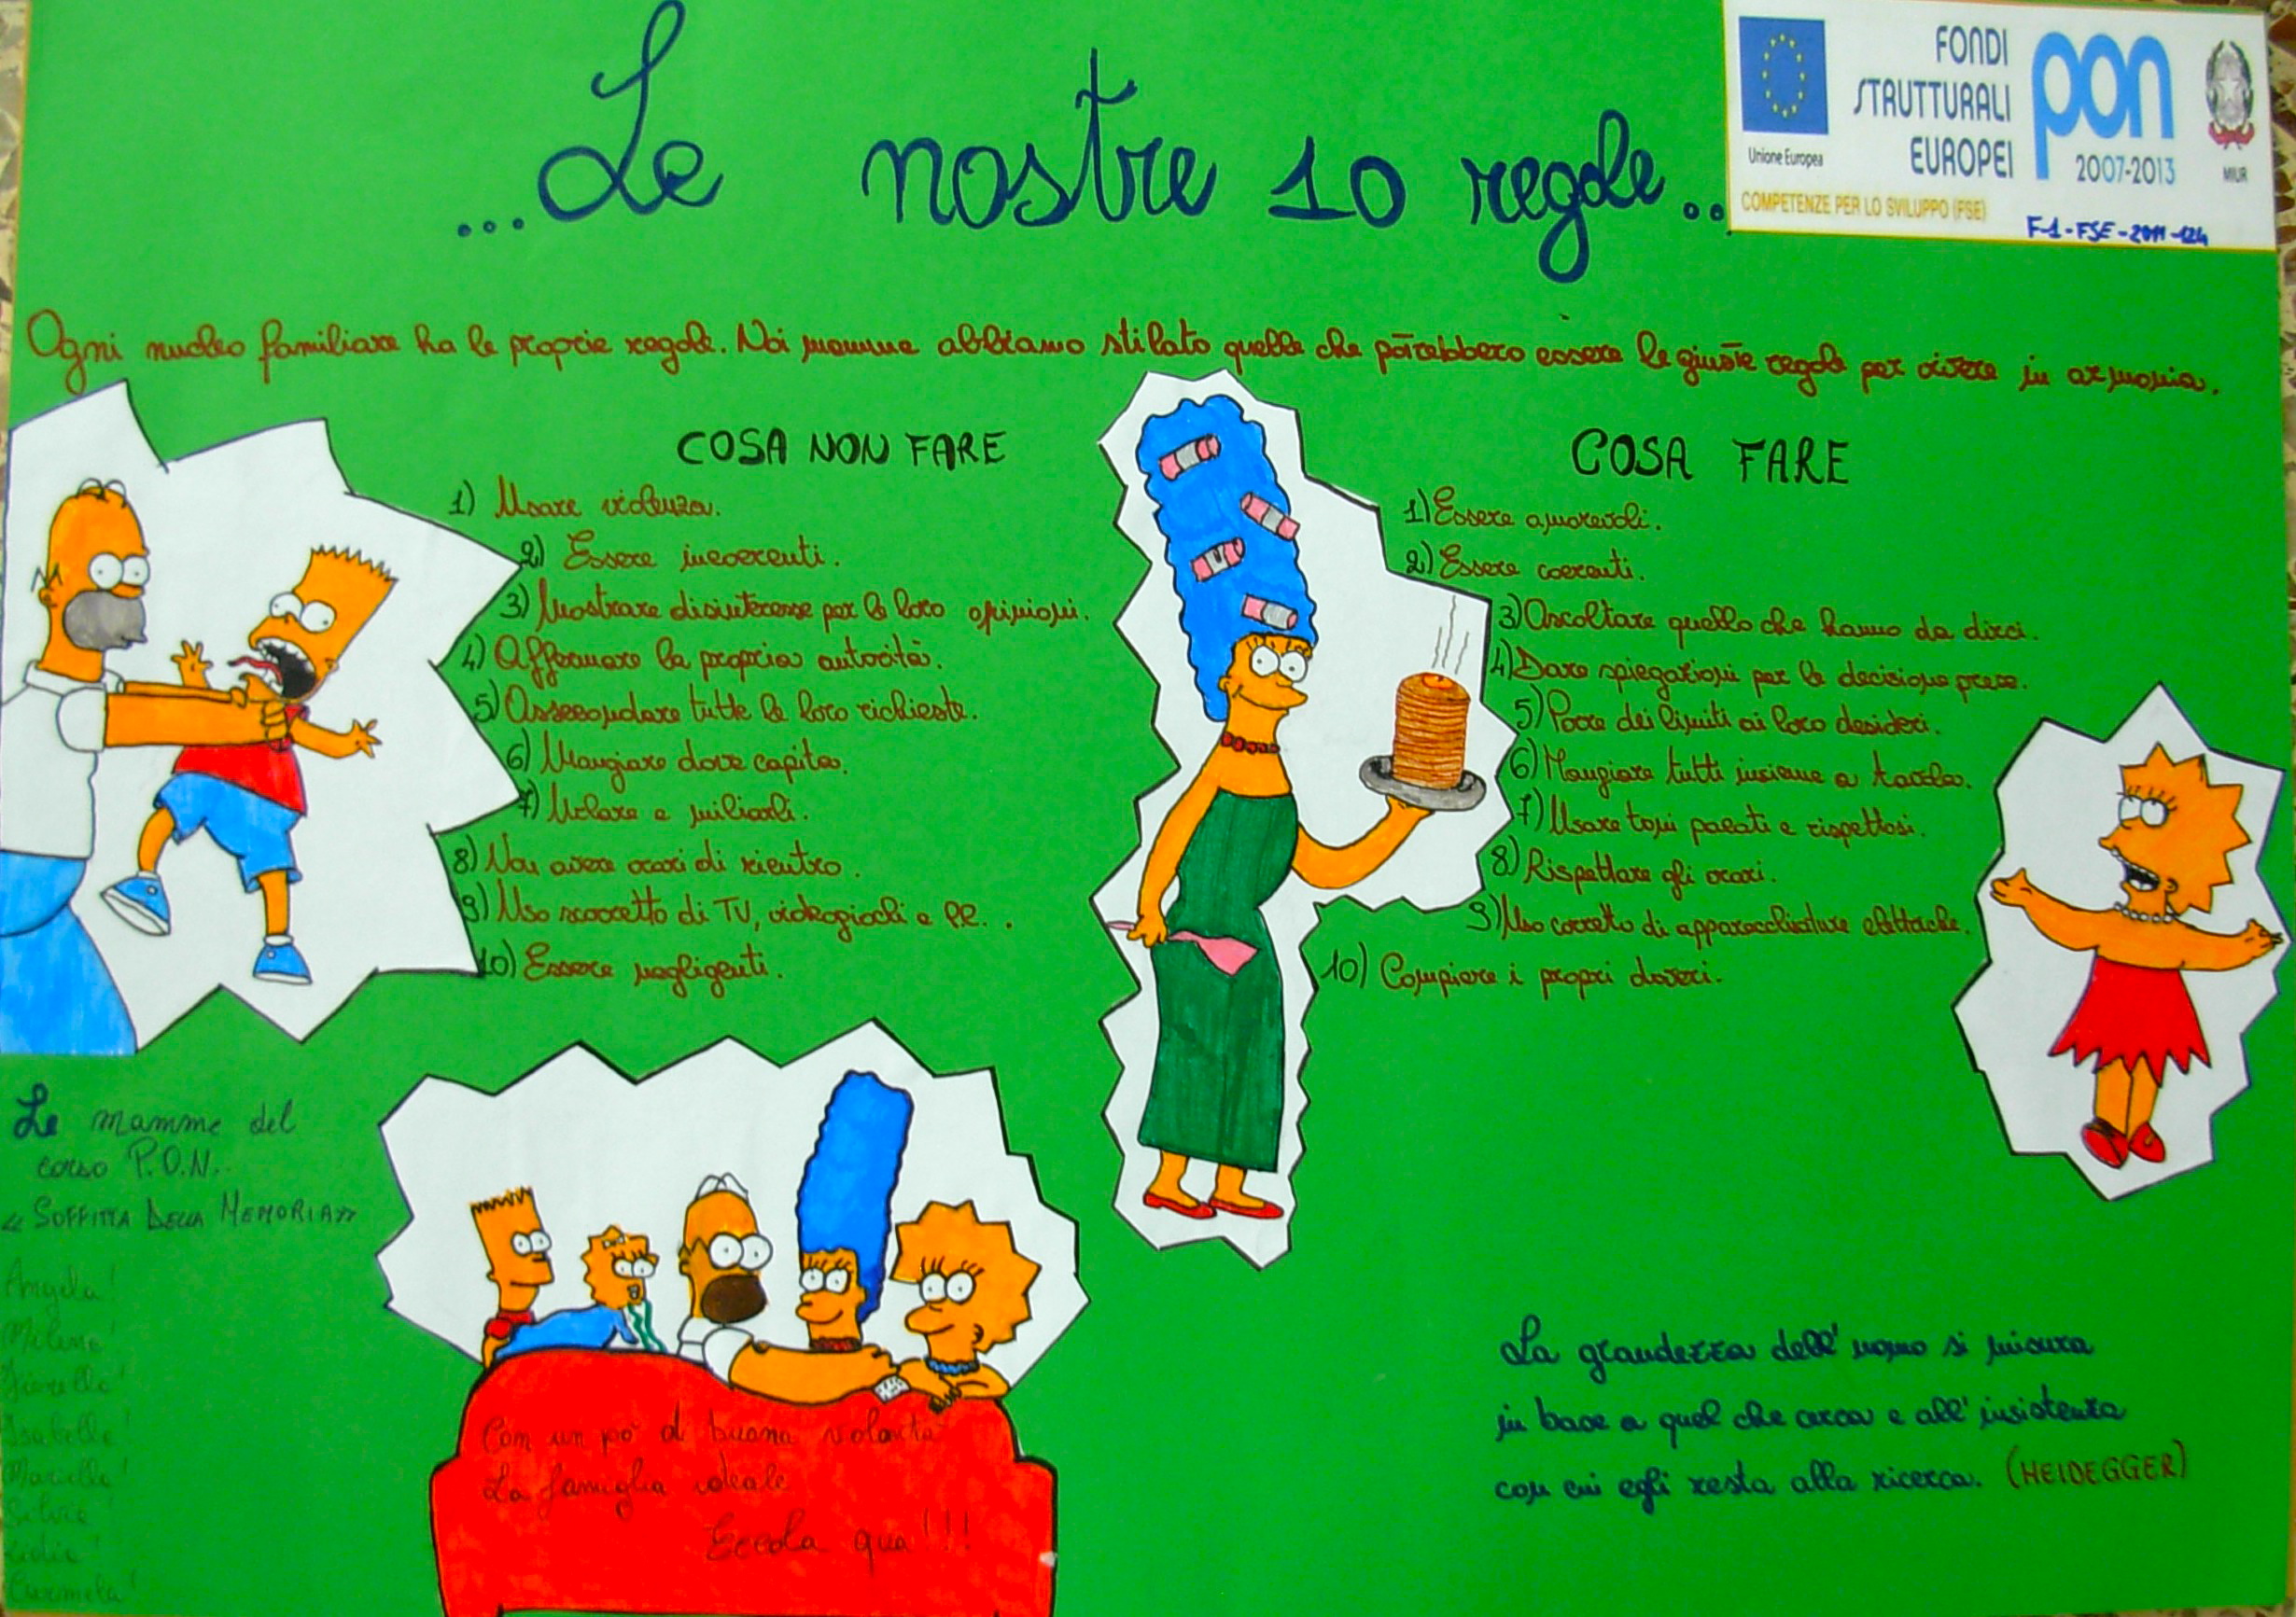 ...Le nostre 10 regole..
Unione Europea
FONDI
STRUTTURALI
EUROPEI
pon
2007-2013
MIUR
COMPETENZE PER LO SVILUPPO (FSE)
F-1-FSE-2011-124
Ogni nucleo familiare ha le proprie regole. Noi mamme abbiamo stilato quelle che potrebbero essere le giuste regole per vivere in armonia.
COSA NON FARE
1) Usare violenza.
2) Essere incoerenti.
3) Mostrare disinteresse per le loro opinioni.
4) Affermare la propria autorità.
5) Assecondare tutte le loro richieste.
6) Mangiare dove capita.
7) Urlare e
8) Non avere orari di rientro.
9) Uso scorretto di TV, videogiochi e P.C. .
10) Essere negligenti.
COSA FARE
1) Essere amorevoli.
2) Essere coerenti.
3) Ascoltare quello che hanno da dirci.
4) Dare spiegazioni per le decisione prese.
5) Porre dei limiti ai loro desideri.
6) Mangiare tutti insieme a tavola.
7) Usare toni pacati e rispettosi.
8) Rispettare gli orari.
9) Uso corretto di apparecchiature elettriche.
10) Compiere i propri doveri.
Le mamme del
corso P.O.N.
"SOFFITTA DELLA MEMORIA"
Angela!
Milena!
Fiorella!
Isabella!
Mariella!
Silvia!
Lidia!
Carmela!
Con un pò di buona volontà
La famiglia ideale
Eccola qua!!!
La grandezza dell'uomo si misura
in base a quel che cerca e all'insistenza
con cui egli resta alla ricerca. (HEIDEGGER)